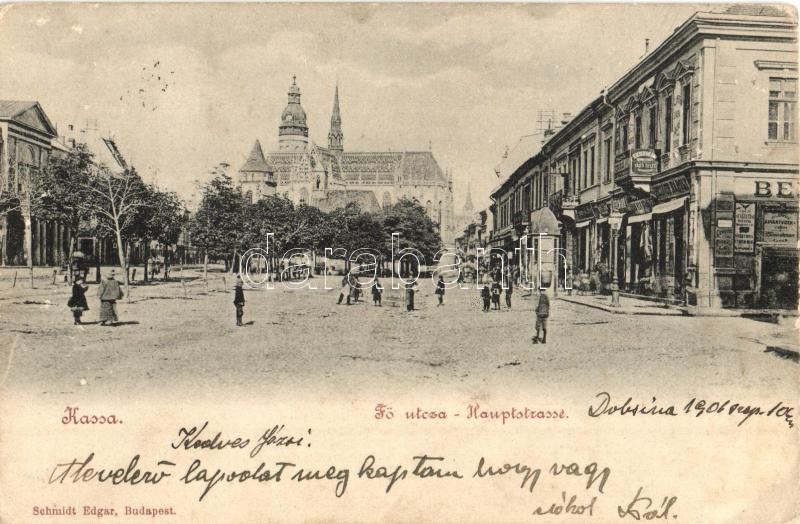 BE
darabanth
Kassa.
Fő utcza - Hauptstrasse.
Dobsina 1901 szep. 10
Kedves Józsi:
A levelező lapodat meg kaptam hogy vagy
csókol Pál.
Schmidt Edgar, Budapest.